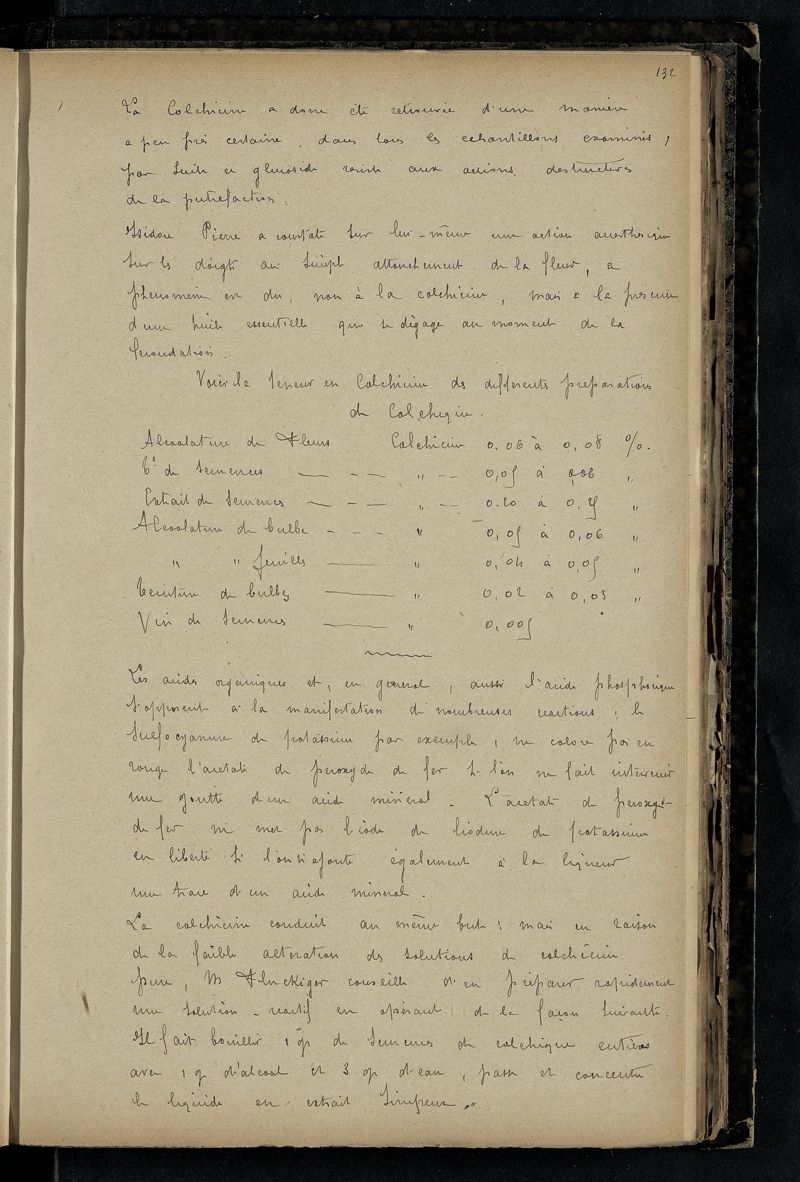 132
La Colchicine a donc été retrouvée d'une manière
a peu près certaine, dans tous les echantillons examinés,
par suite ce glucoside résiste aux actions destructives
de la putrefaction.
Isidore Pierre a constaté sur lui-même une action anesthésique
sur les doigts au simple attouchement de la fleur, ce
phenomène est du, non à la colchicine, mais a la presence
d'une huile essentielle que se dégage au moment de la
fecondation.
Voici la teneur en Colchicine des differents preparations
de Colchique.
Alcoolature de Fleurs Colchicine 0.06 à 0,08 %.
de Semences — — — „ — — 0,05 à 0,06 „
Extrait de Semences — — — „ — 0.20 à 0.25 „
Alcoolature de bulbe - - - „ 0,05 à 0,06 „
„ „ feuilles — „ 0,04 à 0,05 „
Teinture de bulbes — „ 0,02 à 0,03 „
Vin de Semences — „ 0,005
Les acides organiques et, en general, aussi l'acide phosphorique
s'opposent à la manifestation de nombreuses reactions; le
sulfocyanure de potassium par exemple, ne colore pas en
rouge l'acetate de peroxyde de fer si l'on ne fait intervenir
une goutte d'un acide minéral. L'acetate de peroxyde
de fer ne met pas l'iode de l'iodure de potassium
en liberté si l'on n'ajoute également à la liqueur
une trace d'un acide mineral.
La colchicine conduit au même but: mais en raison
de la faible alteration des solutions de colchicine
pure, M Fluckiger conseille d'en préparer rapidement
une solution-reactif en opérant de la façon suivante.
Il fait bouillir 1 gr de Semences de colchique entières
avec 1 g d'alcool et 3 gr d'eau, passe et concentre
le liquide en extrait sirupeux.